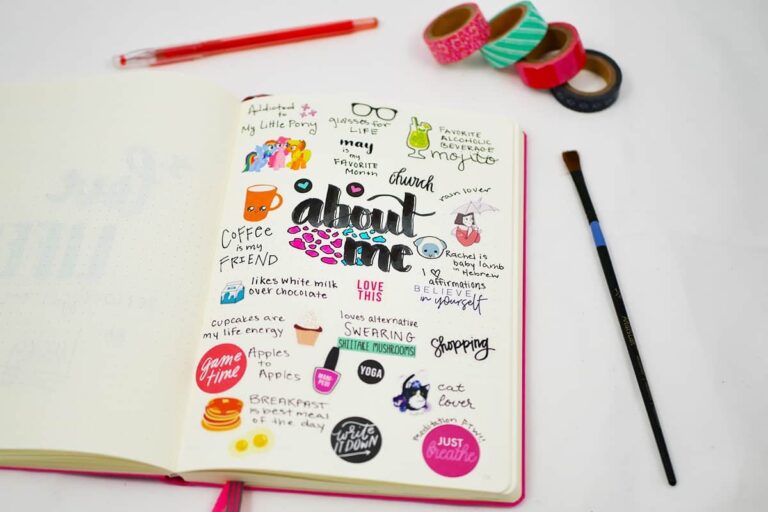 Addicted to
My Little Pony
glasses for
LIFE
FAVORITE
ALCOHOLIC
BEVERAGE
mojito
may
is my
FAVORITE
Month
church
rain lover
about
me
COFFEE
is my
FRIEND
Rachel is
baby lamb
in Hebrew
I
affirmations
BELIEVE
in yourself
likes white milk
over chocolate
LOVE
THIS
cupcakes are
my life energy
loves alternative
SWEARING
SHIITAKE MUSHROOMS!
shopping
game
time
Apples
to
Apples
MANI-
PEDI
YOGA
cat
lover
BREAKFAST
is best meal
of the day
write
IT DOWN
meditation FTW!!
JUST
breathe